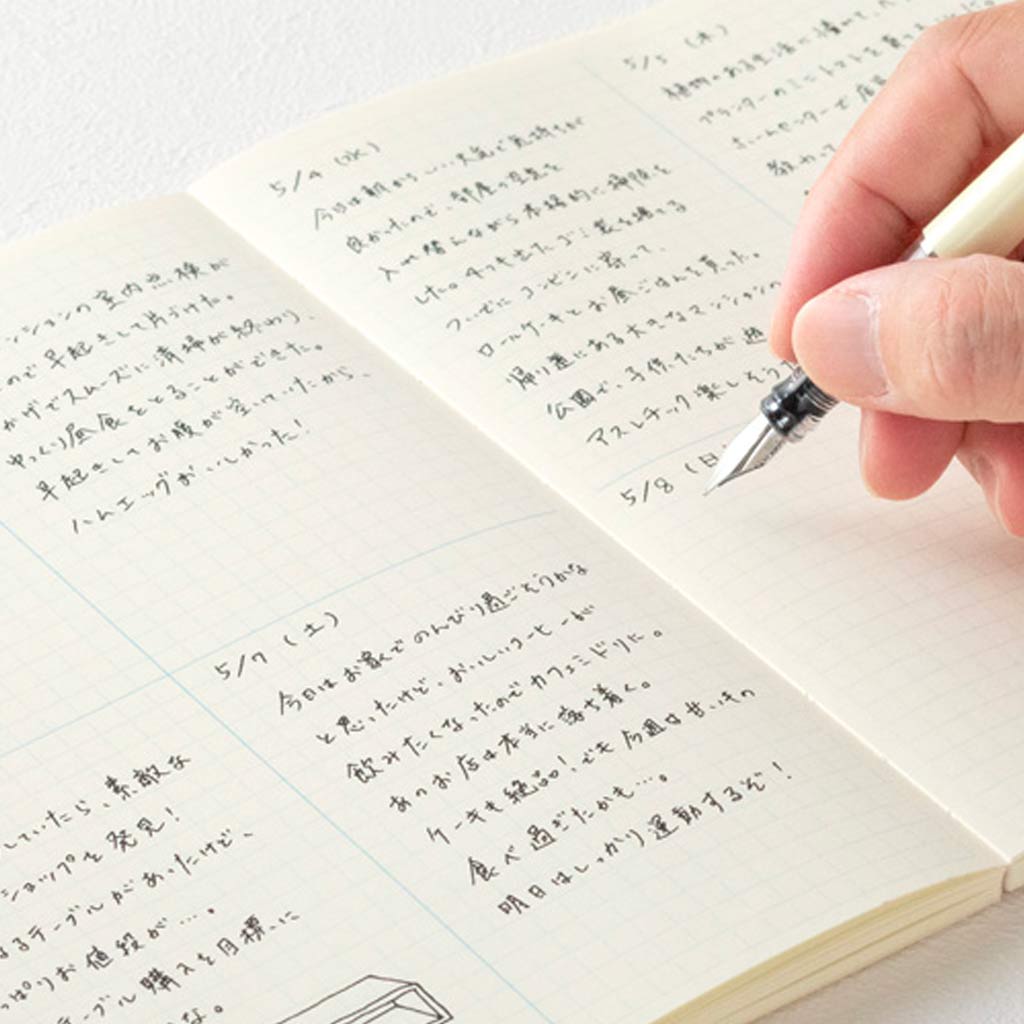 ションの室内点検が
ので早起きして片づけた。
かげでスムーズに清掃が終わり、
ゆっくり昼食をとることができた。
早起きしてお腹が空いていたから、
ハムエッグおいしかった!
していたら、素敵な
ショップを発見!
なるテーブルがあったけど、
っぱりお値段が…。
テーブル購入を目標に
かな。
5/7 (土)
今日はお家でのんびり過ごそうかな
と思ったけど、おいしいコーヒーが
飲みたくなったのでカフェミドリに。
あのお店は本当に落ち着く。
ケーキも絶品!でも今週は甘いもの
食べ過ぎたかも…。
明日はしっかり運動するぞ!
5/4 (水)
今日は朝からいい天気で気持ちが
良かったので、部屋の空気を
入れ替えながら本格的に掃除を
した。4つも出たゴミ袋を捨てる
ついでにコンビニに寄って、
ロールケーキとお昼ごはんを買った。
帰り道にある大きなマンションの
公園で、子供たちが遊
アスレチック楽しそう
5/8 (日
5/5 (木)
植物のある生活に憧れて、
プランターのミニトマトを買っ
ホームセンターで店員
教わって